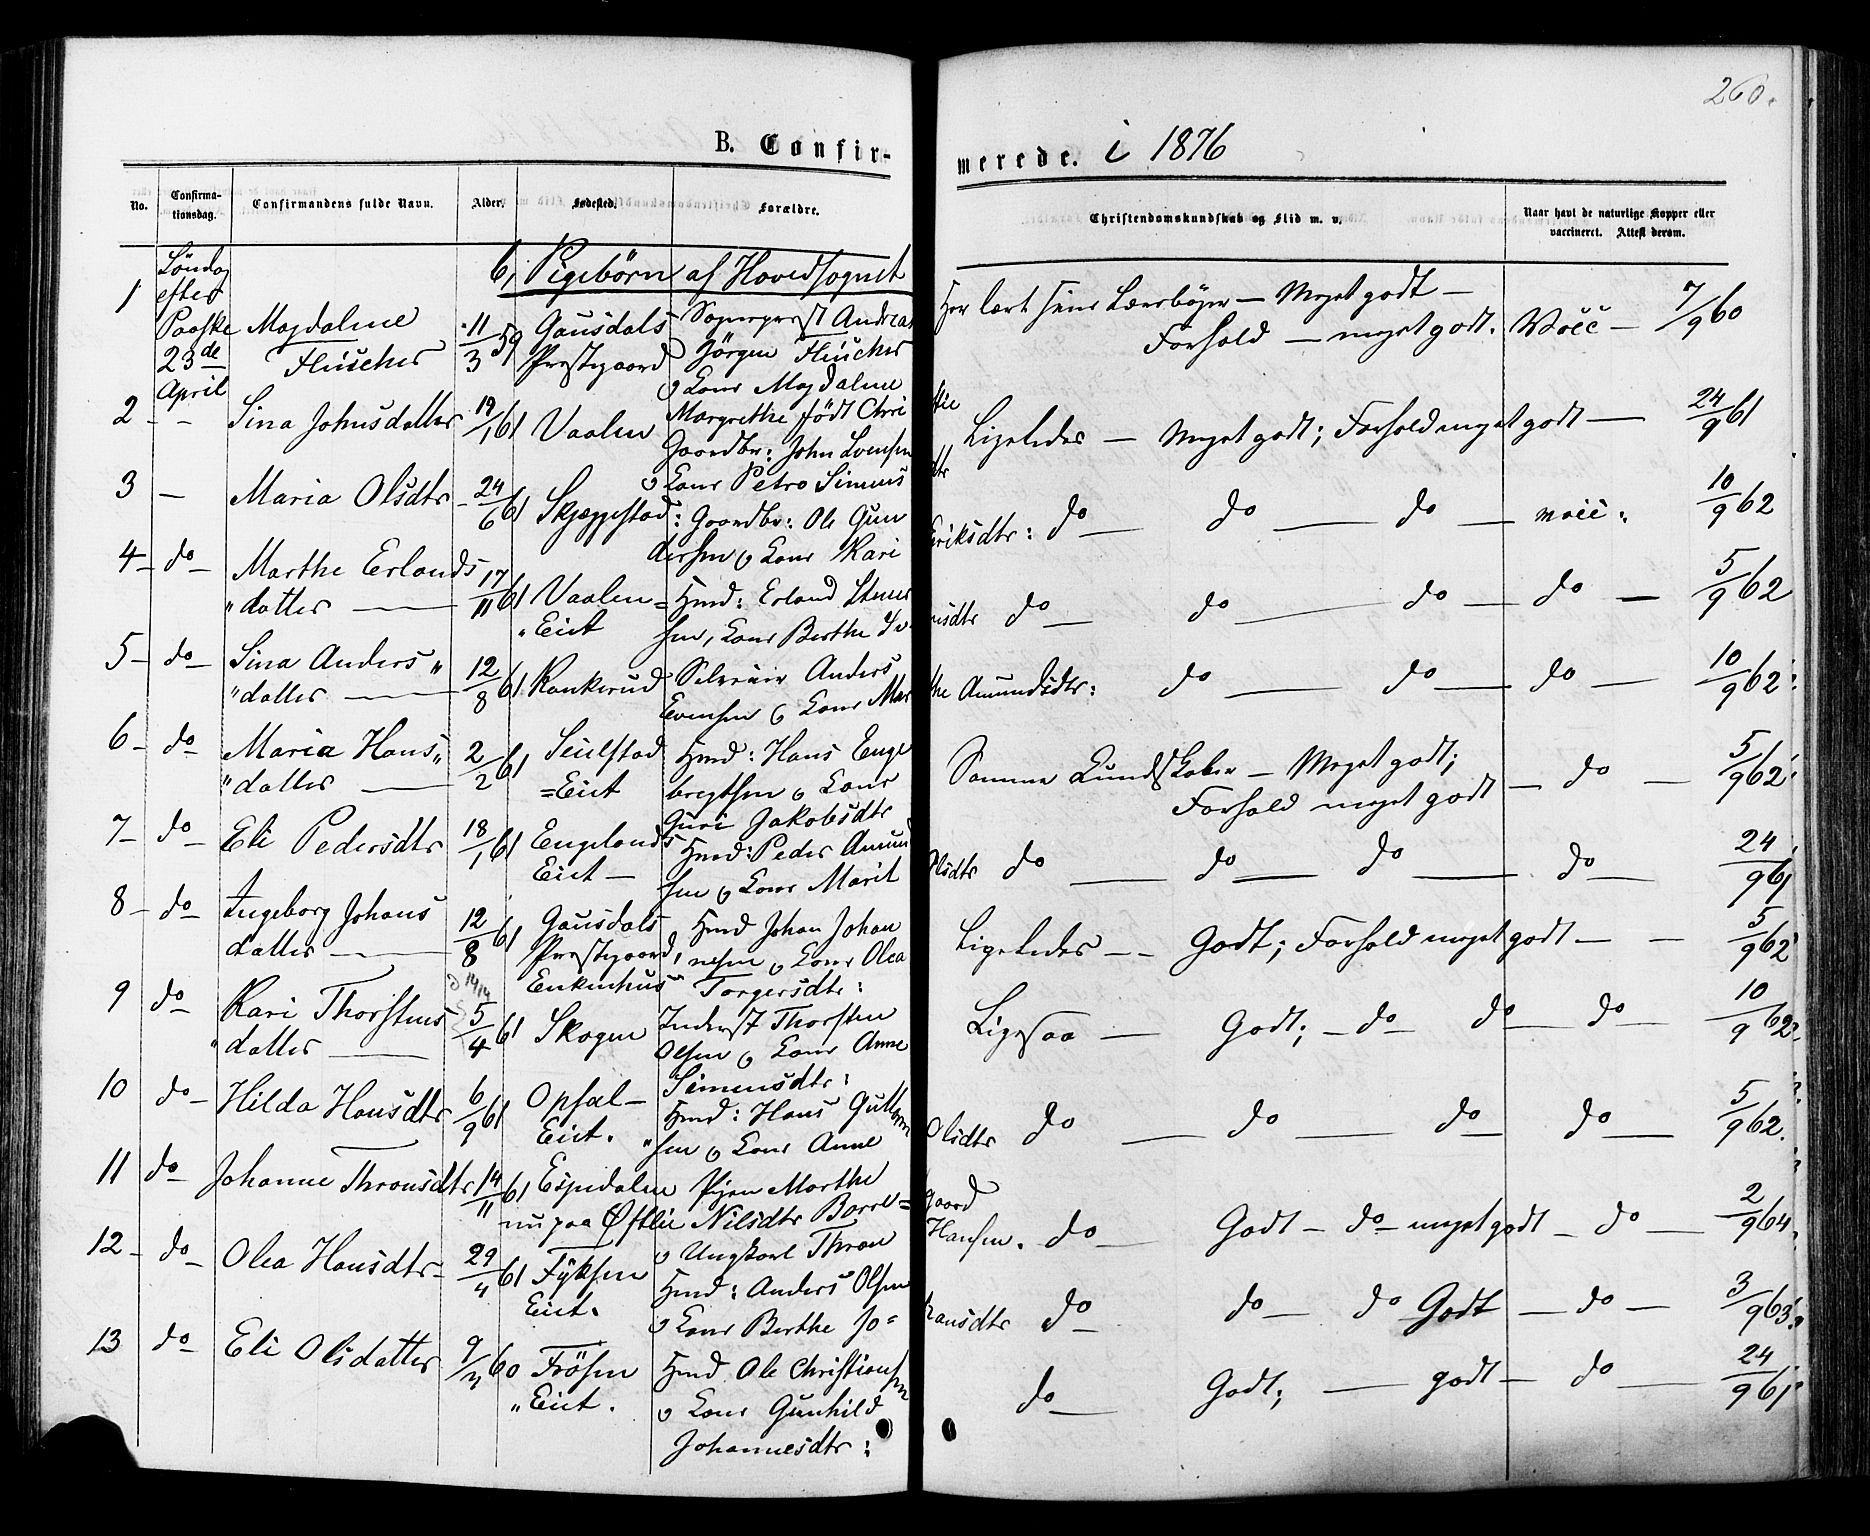 260.
B. Confir-
merede. i 1876
No.
Confirma-
tionsdag.
Confirmandens fulde Navn.
Alder.
Fødested.
Forældre.
Christendomskundskab og Flid m. v.
Naar havt de naturlige Kopper eller
vaccineret. Attest derom.
6, Pigebörn af Hovedsognet
1
Söndag
efter
Paaske
23de
April
Magdalene
Flüscher
11/3 59
Gausdals
Prestegaard
Sogneprest Andreas
Jörgen Flüscher
o Kone Magdalene
Margrethe födt Chri
stie
Har lært sine Læreböger - Meget godt -
Forhold - meget godt.
Vacc - 7/9 60
2 - -
Sina Johnsdatter
19/1 61
Vaalen
Gaardbr: John Svensen
o Kone Petro Simens
dtr
Ligeledes - Meget godt; Forhold meget godt - 24/9 61
3 -
Maria Olsdtr
24/6 61
Skjeggestad
: Gaardbr: Ole Gun
dersen o Kone Kari
Eriksdtr: do - do - do - vacc: 10/9 62
4 - do -
Marthe Erlands
"datter -
17/11 61
Vaalen=
"Eiet
Hmd: Erland Stener
sen, Kone Berthe Iv
ersdtr do - do - do - do - 5/9 62
5 - do -
Sina Anders"
"datter -
12/8 61
Kankerud
Selveier Anders
Evensen o Kone Mar
the Amundsdtr: do - do - do - 10/9 62
6 - do -
Maria Hans"
"datter -
2/2 61
Seielstad
=Eiet
Hmd: Hans Enge
bregtsen o Kone
Guri Jakobsdtr
Samme Kundskaber - Meget godt;
Forhold meget godt - do - 5/9 62
7 - do -
Eli Pedersdtr
18/1 61
Engelands
Eiet -
Hmd: Peder Amund
sen o Kone Marit
Olsdtr do - do - do - do - 24/9 61
8 - do -
Ingeborg Johans
datter -
12/8 61
Gausdals
Prestegaard,
Enkenhus
Hmd Johan Johan
nesen o Kone Olea
Torgersdtr:
Ligeledes - - Godt; Forhold meget godt - - 5/9 62
9 do -
Kari Thorstens
"datter -
5/4 61
Skogen
Inderst Thorsten
Olsen o Kone Anne
Simensdtr:
Ligesaa - Godt; - do - do - do - 10/9 62
10 do -
Hilda Hansdtr
6/9 61
Opsal -
Eiet.
Hmd: Hans Guttorm
"sen o Kone Anne
Olsdtr do - do - do - do - 5/9 62.
11 do -
Johanne Thronsdtr
14/11 61
Espedalen
nu paa Øftlie
Pigen Marthe
Nilsdtr Borre=
gaard
o Ungkarl Thron
Hansen. do - Godt - do - meget godt - do - 2/9 64
12 - do -
Olea Hansdtr -
29/4 61
Fyksen
Eiet.
Hmd: Anders Olsen
o Kone Berthe Jo=
hansdtr do - do - do Godt - do - 3/9 63
13 do -
Eli Olsdatter
9/11 60
Frösen
"Eiet.
Hmd Ole Christiansen
o Kone Gunhild
Johannesdtr:
do - Godt; - godt - do - 24/9 61